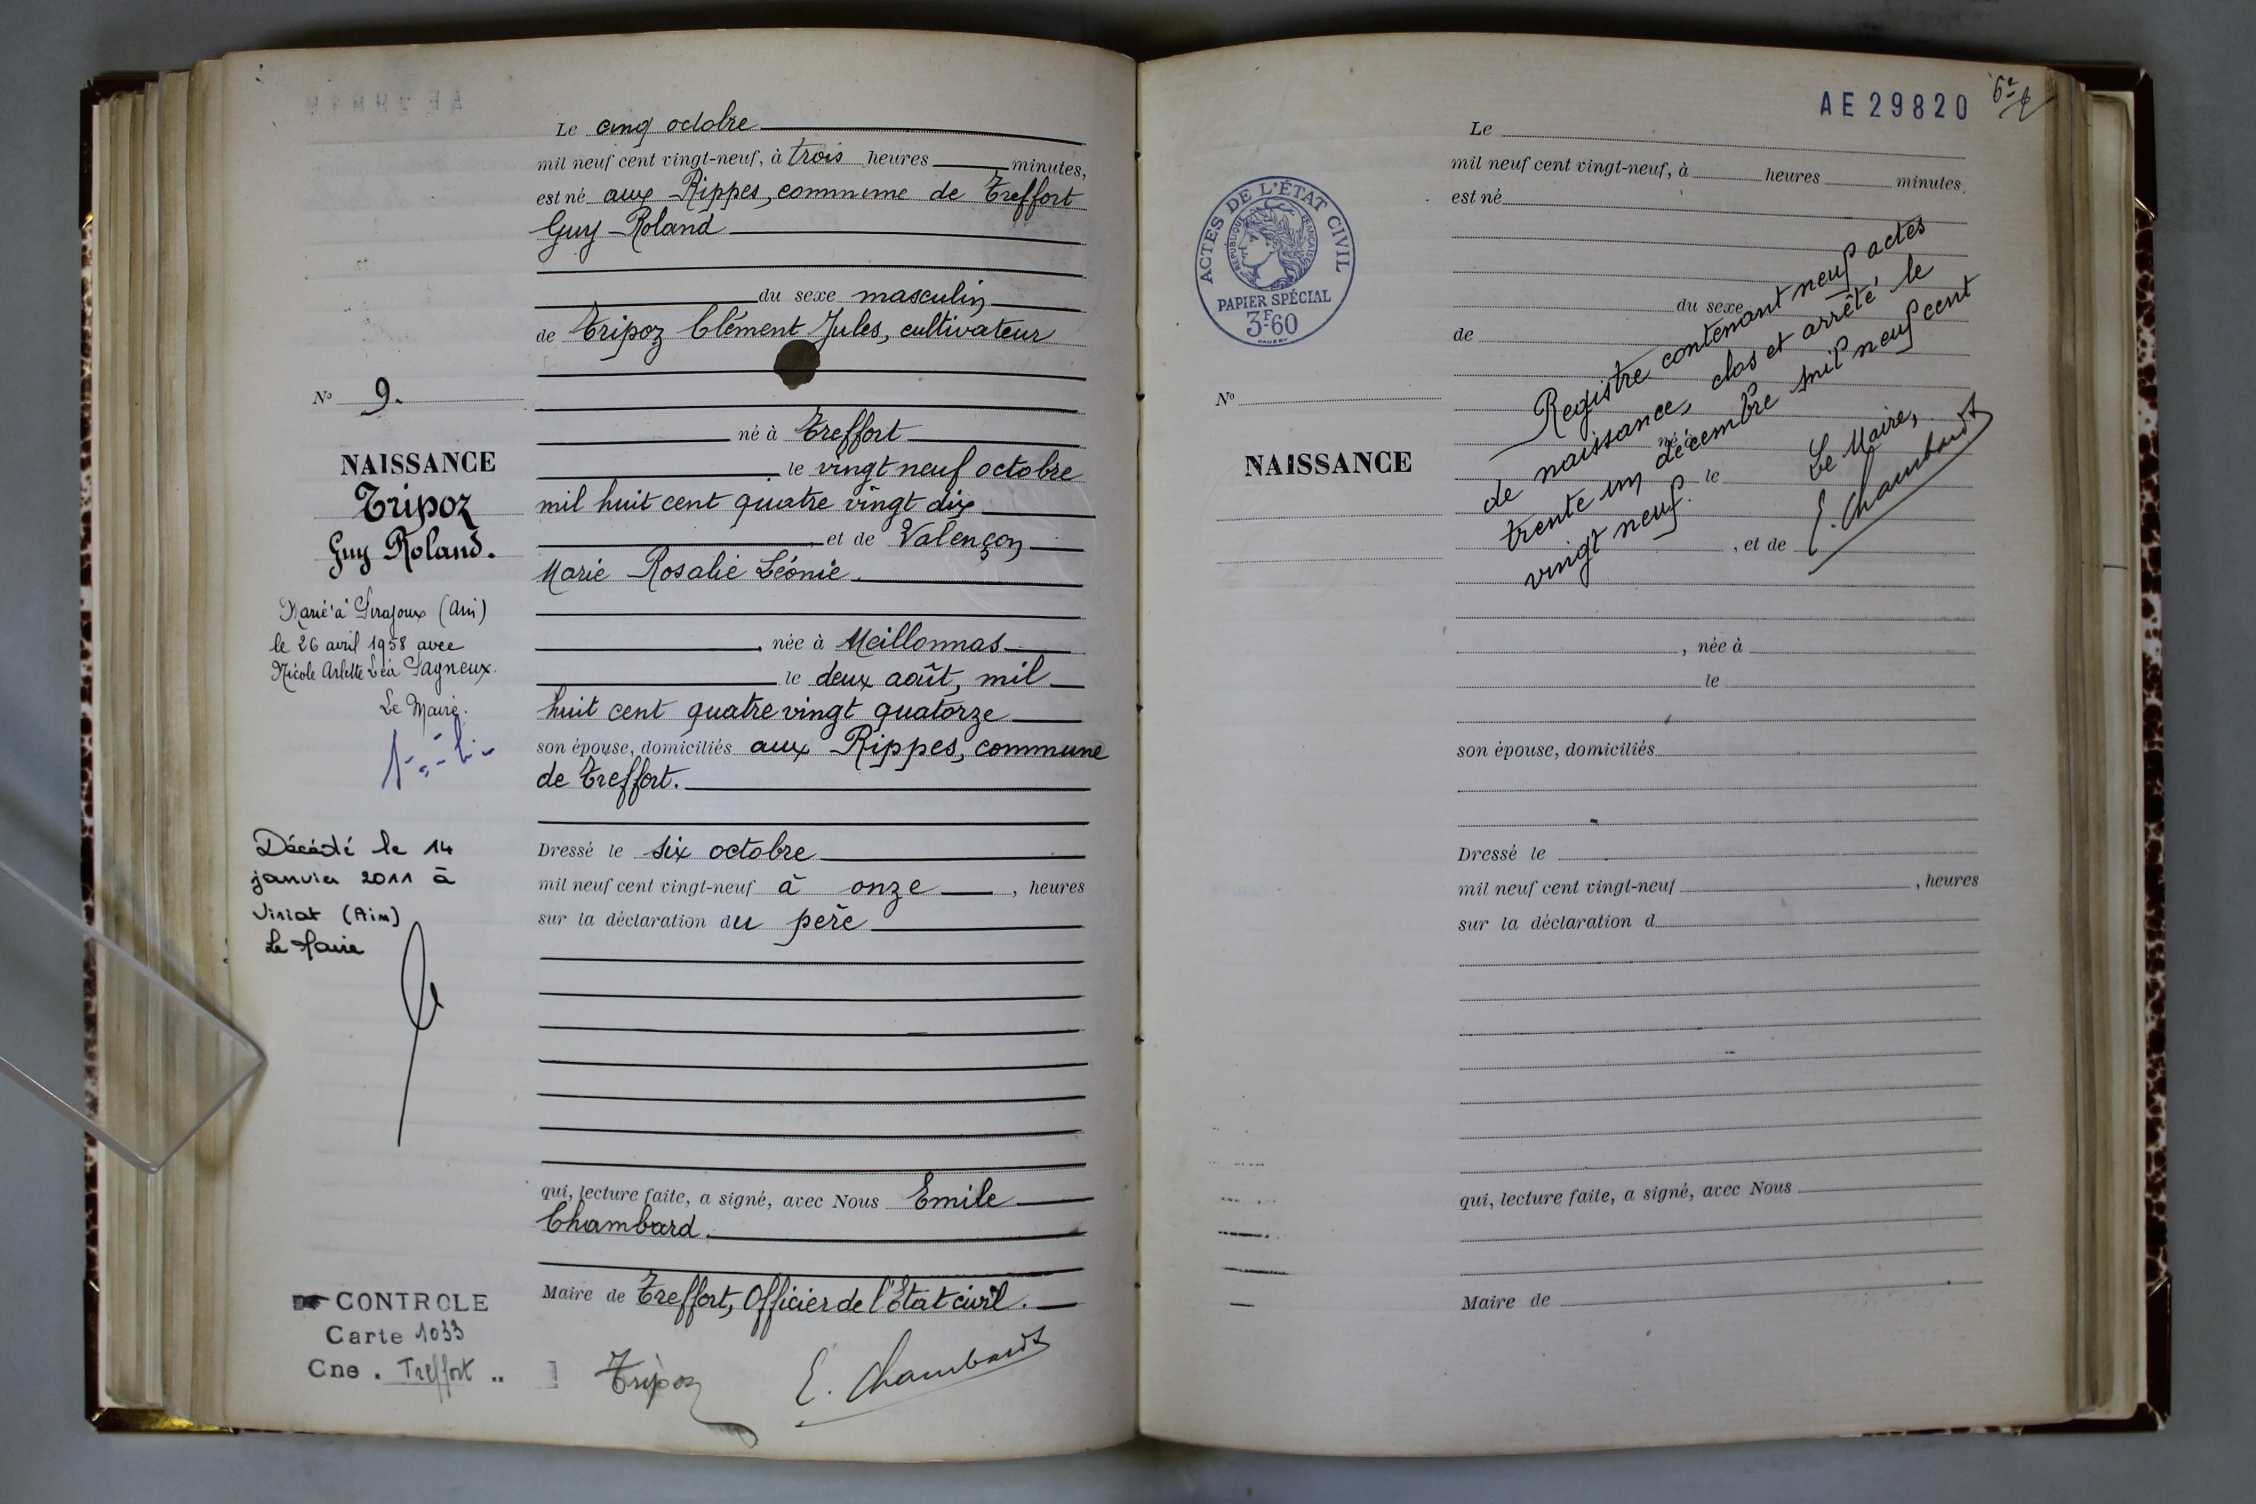 Le cinq octobre
mil neuf cent vingt-neuf, à trois heures minutes,
est né aux Rippes, commune de Treffort
Guy Roland
du sexe masculin
de Tripoz Clément Jules, cultivateur
né à Treffort
le vingt neuf octobre
mil huit cent quatre vingt dix
et de Valençon
Marie Rosalie Léonie.
, née à Meillonnas
le deux août, mil
huit cent quatre vingt quatorze
son épouse, domiciliés aux Rippes, commune
de Treffort.
Dressé le six octobre
mil neuf cent vingt-neuf à onze , heures
sur la déclaration du père
qui, lecture faite, a signé, avec Nous Emile
Chambard.
Maire de Treffort, Officier de l'Etat civil.
Tripoz E. Chambard
No 9.
NAISSANCE
Tripoz
Guy Roland.
Marié à (Ain)
le 26 avril 1958 avec
Nicole Arlette Léa Pagneux.
Le Maire.
Décédé le 14
janvier 2011 à
Viriat (Ain)
Le Maire
CONTROLE
Carte 1033
Cne. Treffort
AE 29820
6e
ACTES DE L'ÉTAT CIVIL
RÉPUBLIQUE FRANÇAISE
PAPIER SPÉCIAL
3F60
No
NAISSANCE
Le
mil neuf cent vingt-neuf, à heures minutes,
est né
du sexe
de
né à
le
, et de
, née à
le
son épouse, domiciliés
Dressé le
mil neuf cent vingt-neuf , heures
sur la déclaration d
qui, lecture faite, a signé, avec Nous
Maire de
Registre contenant neuf actes
de naissance, clos et arrêté le
trente un décembre mil neuf cent
vingt neuf.
Le Maire,
E. Chambard